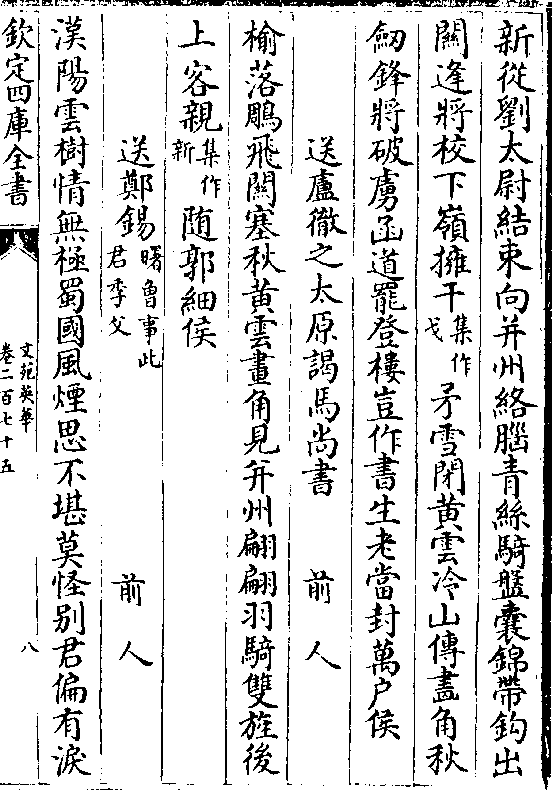 新從劉太尉結束向并州絡腦青絲騎盤囊錦帶鈎出
關逢將校下嶺擁干集作戈矛雪閉黄雲冷山傳畫角秋
劒鋒將破虜函道罷登樓豈作書生老當封萬户侯
送盧徹之太原謁馬尚書　前人
榆落鵰飛關塞秋黄雲畫角見并州翩翩羽騎雙旌後
上客親集作新随郭細侯
送鄭錫曙魯事此君季父　前人
漢陽雲樹情無極蜀國風煙思不堪莫怪别君偏有淚
欽定四庫全書
文苑英華
卷二百七十五
八